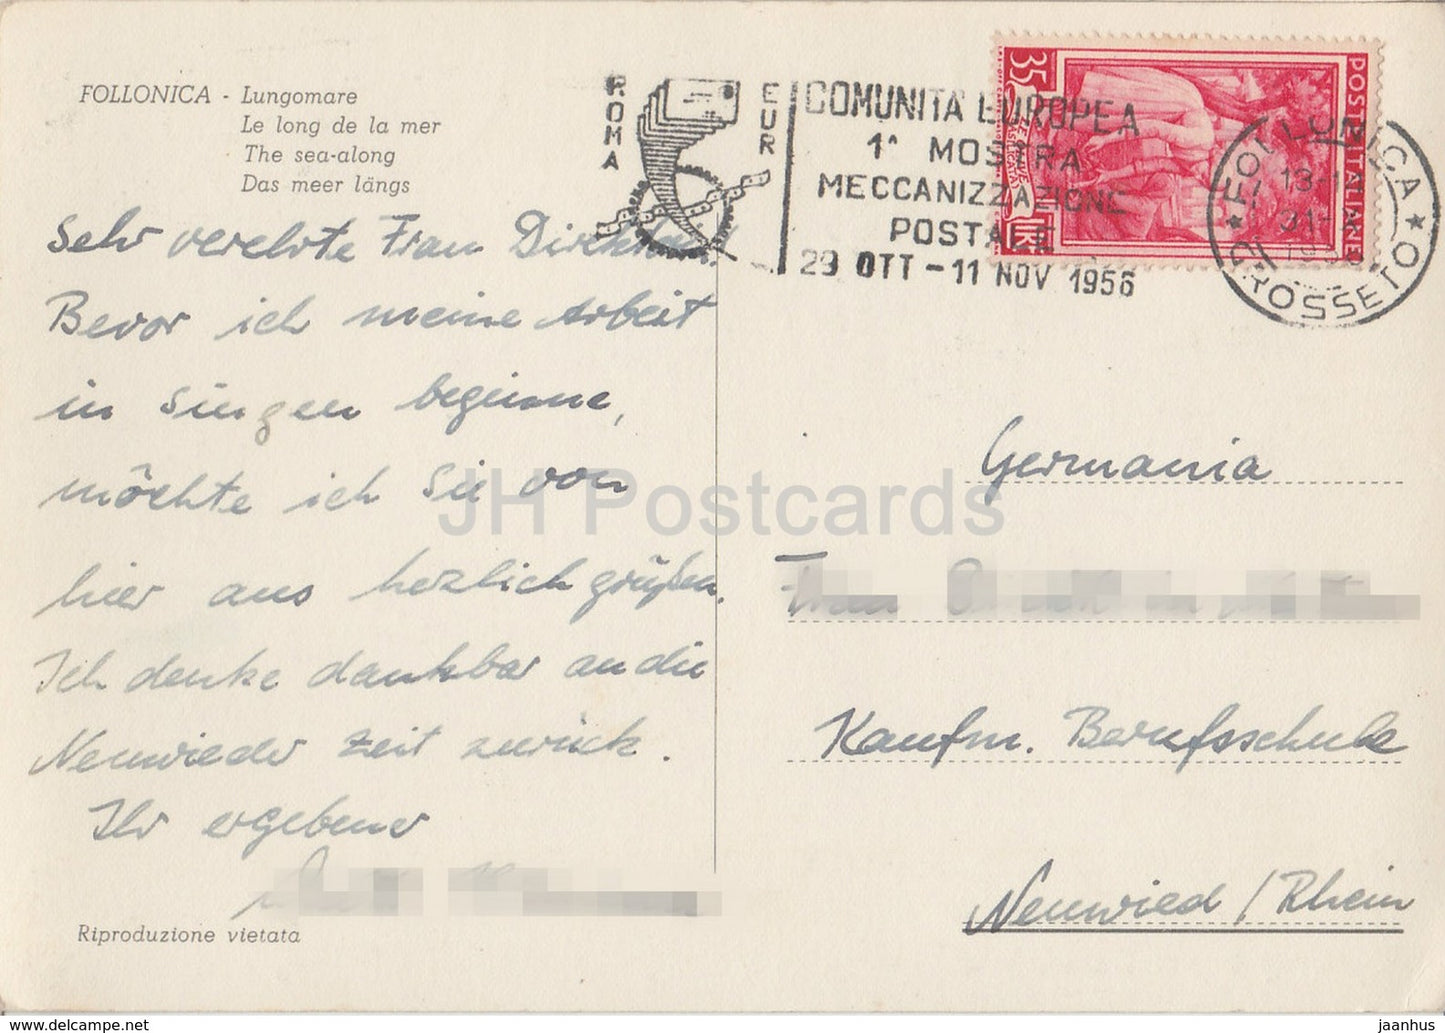 FOLLONICA - Lungomare
Le long de la mer
The sea-along
Das meer längs
Sehr verehrte Frau
Bevor ich meine Arbeit
in Singen beginne,
möchte ich Sie von
hier aus herzlich grüßen.
Ich denke dankbar an die
Neuwieder Zeit zurück.
Ihr ergebener
Riproduzione vietata
ROMA
EUR
COMUNITÀ EUROPEA
1ª MOSTRA
MECCANIZZAZIONE
POSTALE
29 OTT - 11 NOV 1956
35
POSTE ITALIANE
LIRE
FOLLONICA
GROSSETO
Germania
Frau
Kaufm. Berufsschule
Neuwied / Rhein
JH Postcards
delcampe.net
jaanhus